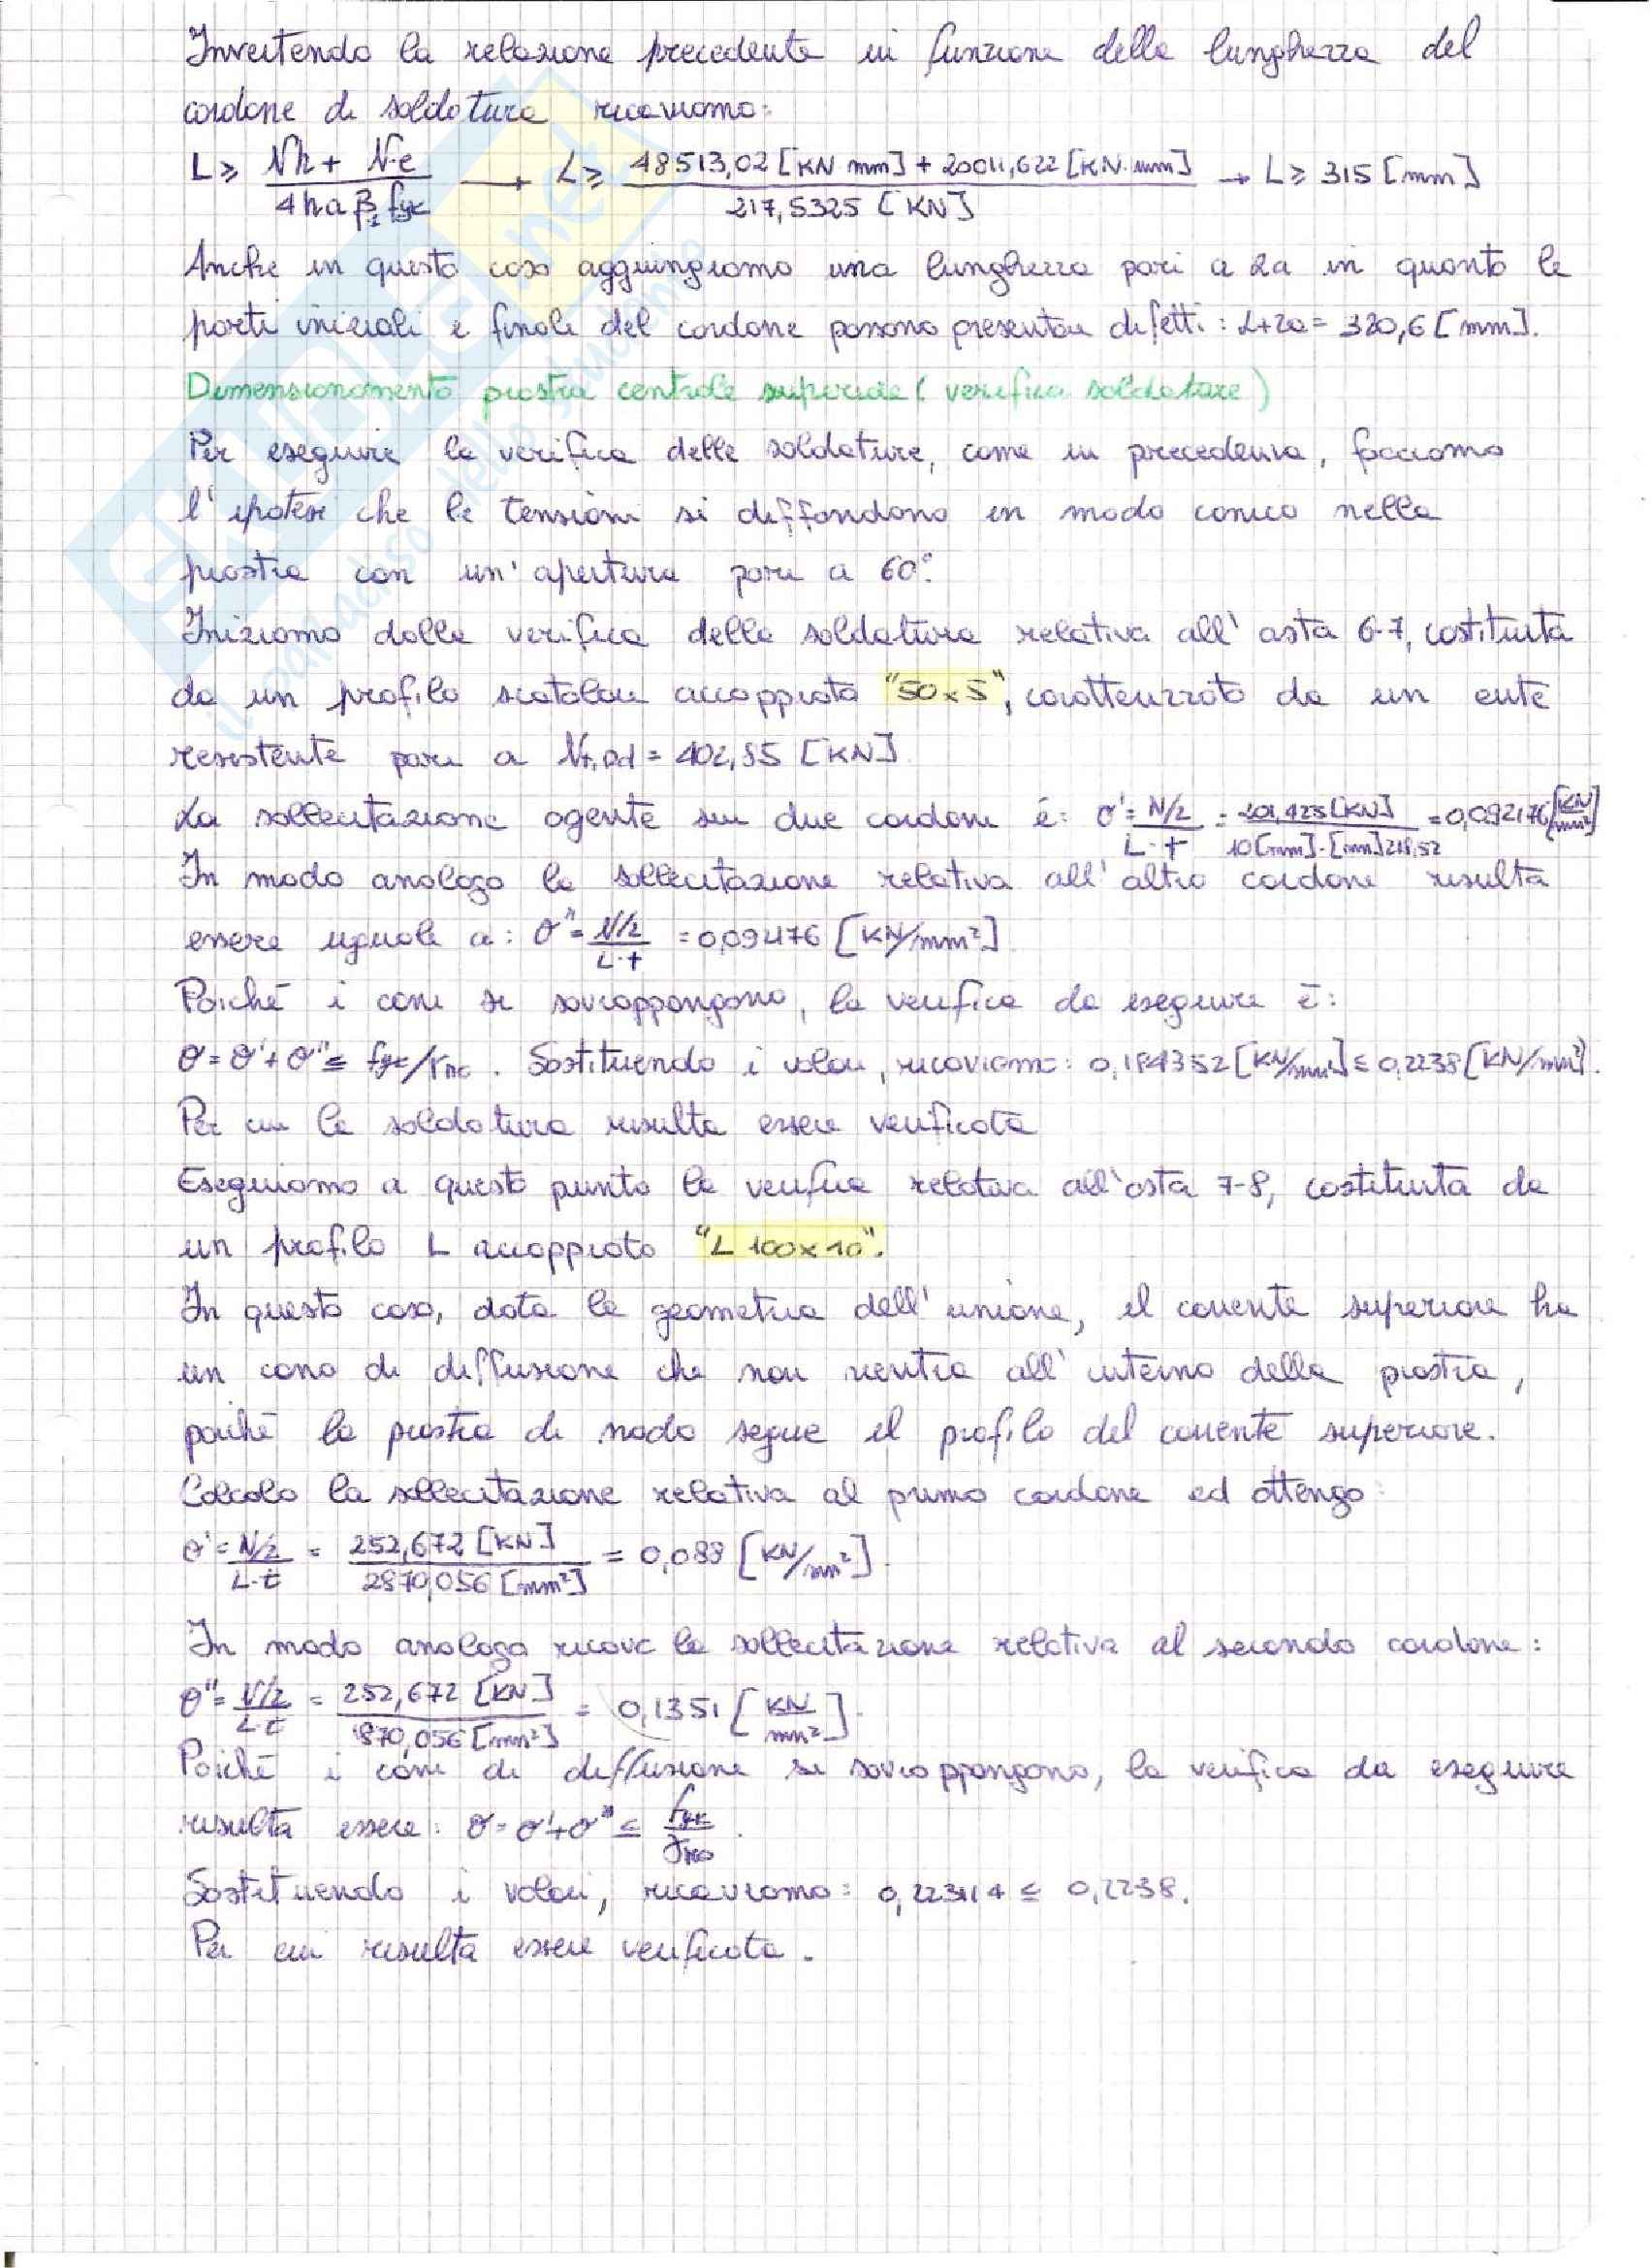 Invertendo la relazione precedente in funzione della lunghezza del
cordone di saldatura ricaviamo:
L ≥ (Nh + N·e)/(4 h a β₁ fyk) → L ≥ (48513,02 [KN mm] + 20011,622 [KN·mm])/(217,5325 [KN]) → L ≥ 315 [mm]
Anche in questo caso aggiungiamo una lunghezza pari a 2a in quanto le
parti iniziali e finali del cordone possono presentare difetti: L+2a = 320,6 [mm].
Dimensionamento piastra centrale superiore (verifica saldature)
Per eseguire la verifica delle saldature, come in precedenza, facciamo
l'ipotesi che le tensioni si diffondono in modo conico nella
piastra con un'apertura pari a 60°.
Iniziamo dalla verifica della saldatura relativa all'asta 6-7, costituita
da un profilo scatolare accoppiato "50x5", caratterizzato da un ente
resistente pari a Nt,Rd = 402,85 [KN]
La sollecitazione agente sui due cordoni è: σ' = (N/2)/(L·t) = 201,425 [KN]/(10 [mm]·[mm] 218,52) = 0,092176 [KN/mm²]
In modo analogo la sollecitazione relativa all'altro cordone risulta
essere uguale a: σ'' = (N/2)/(L·t) = 0,092176 [KN/mm²]
Poiché i coni si sovrappongono, la verifica da eseguire è:
σ = σ' + σ'' ≤ fyk/γM0. Sostituendo i valori, ricaviamo: 0,184352 [KN/mm²] ≤ 0,2238 [KN/mm²].
Per cui la saldatura risulta essere verificata
Eseguiamo a questo punto la verifica relativa all'asta 7-8, costituita da
un profilo L accoppiato "L 100x10".
In questo caso, data la geometria dell'unione, il corrente superiore ha
un cono di diffusione che non rientra all'interno della piastra,
poiché la piastra di nodo segue il profilo del corrente superiore.
Calcolo la sollecitazione relativa al primo cordone ed ottengo:
σ' = (N/2)/(L·t) = 252,672 [KN]/2870,056 [mm²] = 0,088 [KN/mm²].
In modo analogo ricavo la sollecitazione relativa al secondo cordone:
σ'' = (N/2)/(L·t) = 252,672 [KN]/1870,056 [mm²] = 0,1351 [KN/mm²].
Poiché i coni di diffusione si sovrappongono, la verifica da eseguire
risulta essere: σ = σ' + σ'' ≤ fyk/γM0.
Sostituendo i valori, ricaviamo: 0,223114 ≤ 0,2238.
Per cui risulta essere verificata.